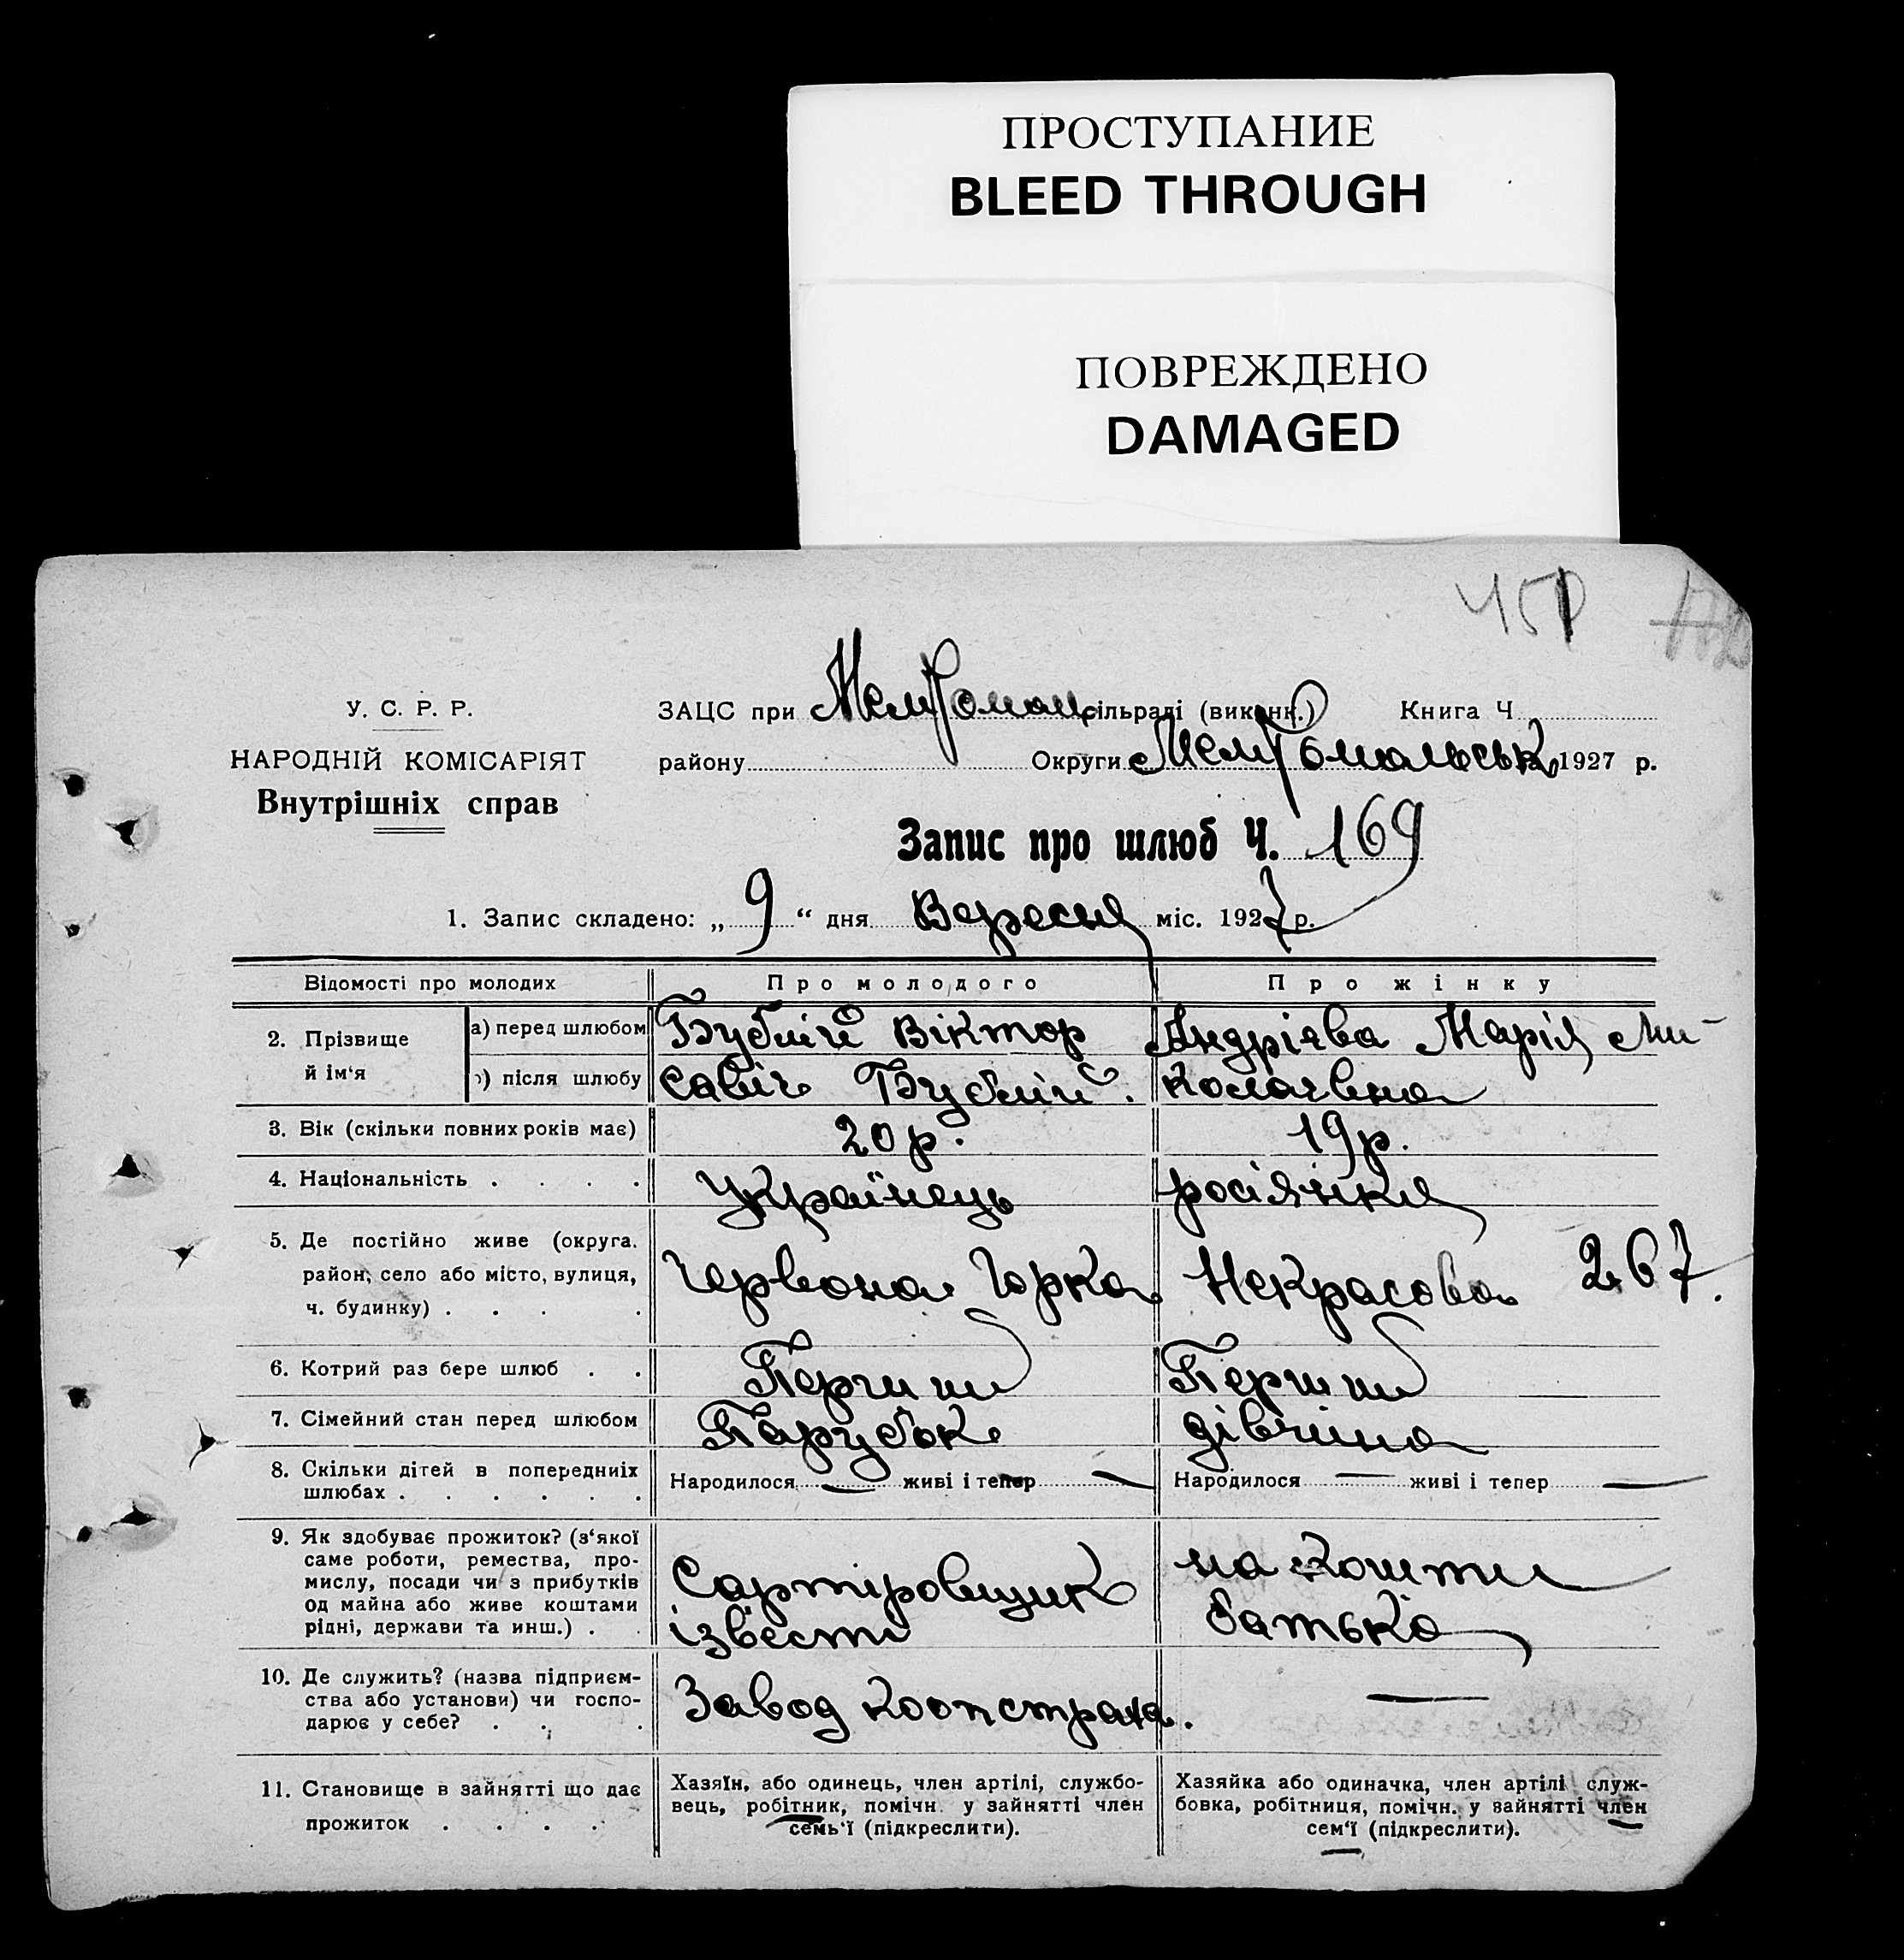 ПРОСТУПАНИЕ
BLEED THROUGH
ПОВРЕЖДЕНО
DAMAGED
У. С. Р. Р.
НАРОДНІЙ КОМІСАРІЯТ
Внутрішніх справ
ЗАЦС при Мелітопол. сільраді (виконк.) Книга Ч
району Округи Мелітопольськ 1927 р.
Запис про шлюб Ч. 169
1. Запис складено: „ 9 “ дня Вересня міс. 1927 р.
Відомості про молодих Про молодого Про жінку
2. Прізвище й ім‘я
а) перед шлюбом Бублій Віктор Андріява Марія Ми-
б) після шлюбу Савіч Бублій. колаівна
3. Вік (скільки повних років має) 20 р. 19 р.
4. Національність українець росіянка
5. Де постійно живе (округа.
район, село або місто, вулиця,
ч. будинку) Червона Горка Некрасова 267.
6. Котрий раз бере шлюб Перший Перший
7. Сімейний стан перед шлюбом Парубок дівчина
8. Скільки дітей в попередниіх
шлюбах Народилося — живі і тепер — Народилося — живі і тепер —
9. Як здобуває прожиток? (з‘якої
саме роботи, ремества, про-
мислу, посади чи з прибутків
од майна або живе коштами
рідні, держави та инш.)
Сартіровщик
ізвести
на кошти
батька
10. Де служить? (назва підприєм-
ства або установи) чи госпо-
дарює у себе?
Завод коопстраха. —
11. Становище в зайнятті що дає
прожиток
Хазяїн, або одинець, член артілі, службо-
вець, робітник, помічн. у зайнятті член
семь‘ї (підкреслити).
Хазяйка або одиначка, член артілі служ-
бовка, робітниця, помічн. у зайнятті член
сем‘ї (підкреслити).